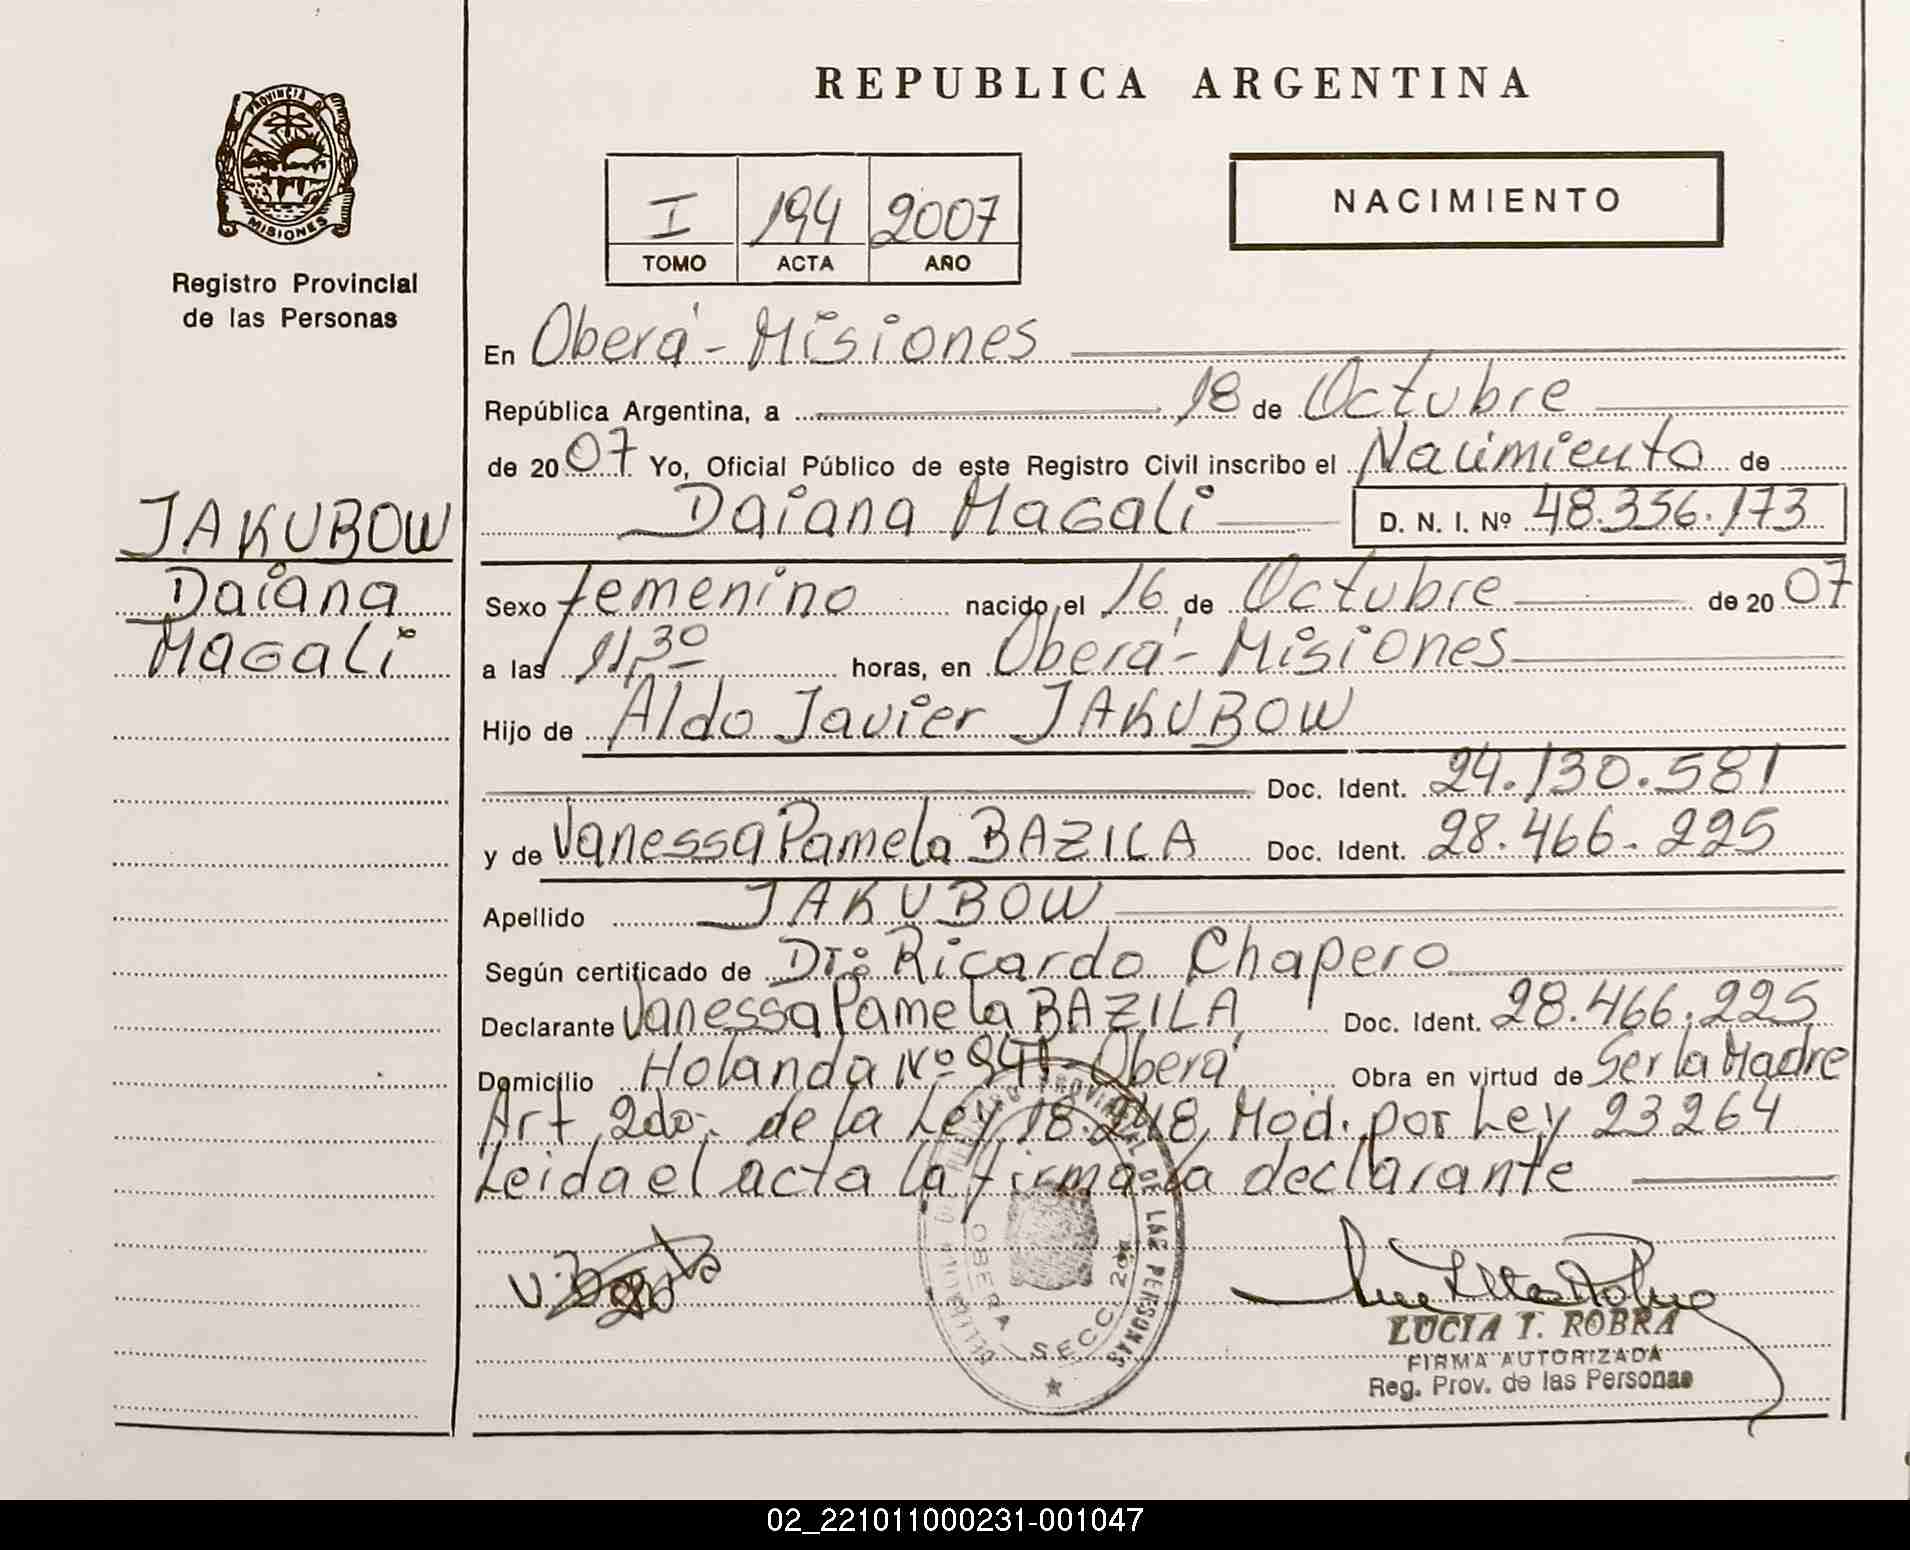 REPUBLICA ARGENTINA
PROVINCIA D
MISIONES
Registro Provincial
de las Personas
I 194 2007
TOMO ACTA AÑO
NACIMIENTO
JAKUBOW
Daiana
Magali
En Oberá - Misiones
República Argentina, a 18 de Octubre
de 2007 Yo, Oficial Público de este Registro Civil inscribo el Nacimiento de
Daiana Magali D. N. I. Nº 48.356.173
Sexo femenino nacido el 16 de Octubre de 2007
a las 11,30 horas, en Oberá - Misiones
Hijo de Aldo Javier JAKUBOW
Doc. Ident. 24.130.581
y de Vanessa Pamela BAZILA Doc. Ident. 28.466.225
Apellido JAKUBOW
Según certificado de Dr: Ricardo Chapero
Declarante Vanessa Pamela BAZILA Doc. Ident. 28.466.225
Domicilio Holanda Nº 941 - Oberá Obra en virtud de Ser la Madre
Art 2do: de la Ley 18.248, Mod. por Ley 23264
Leida el acta la firma la declarante
PROVINCIAL DE LAS PERSONAS
OBERA SECC. 2da
LUCIA I. ROBRA
FIRMA AUTORIZADA
Reg. Prov. de las Personas
02_221011000231-001047